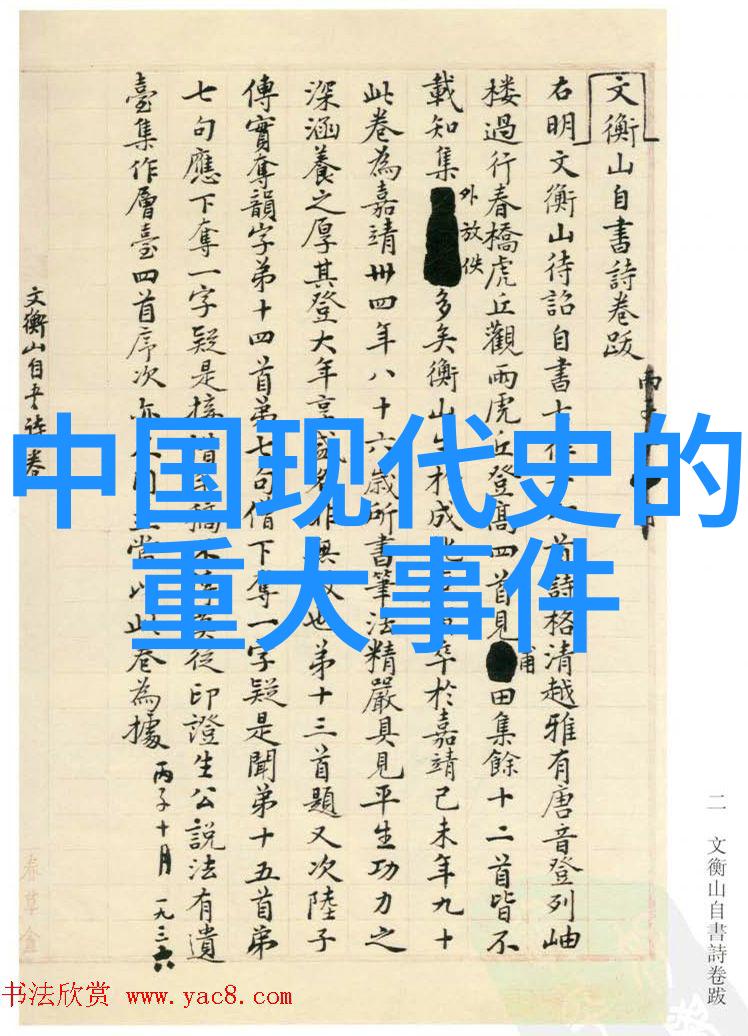 文衡山自書詩卷跋
右明文衡山待詔自書七
首詩格清越雅有唐音登列岫
楼過行春橋虎丘觀雨虎丘登高四首見甫田集餘十二首皆不
載知集外放佚多矣衡山生
成
卒於嘉靖己未年九十
此卷為嘉靖卅四年八十六歲所書筆法精嚴具見平生功力之
深涵養之厚其登大年享盛名非無
也第十三首題又次陸子
傳實奪韻字弟十四首弟七句借下奪一字疑是聞弟十五首弟
七句應下奪一字疑是
從印證生公説法有遺
臺集作層臺四首序次亦
此卷為據
丙子十月
一九三六
文衡山自书詩卷
中国现代史的
重大事件
二 文衡山自書詩卷跋
书法欣赏 www.yac8.com